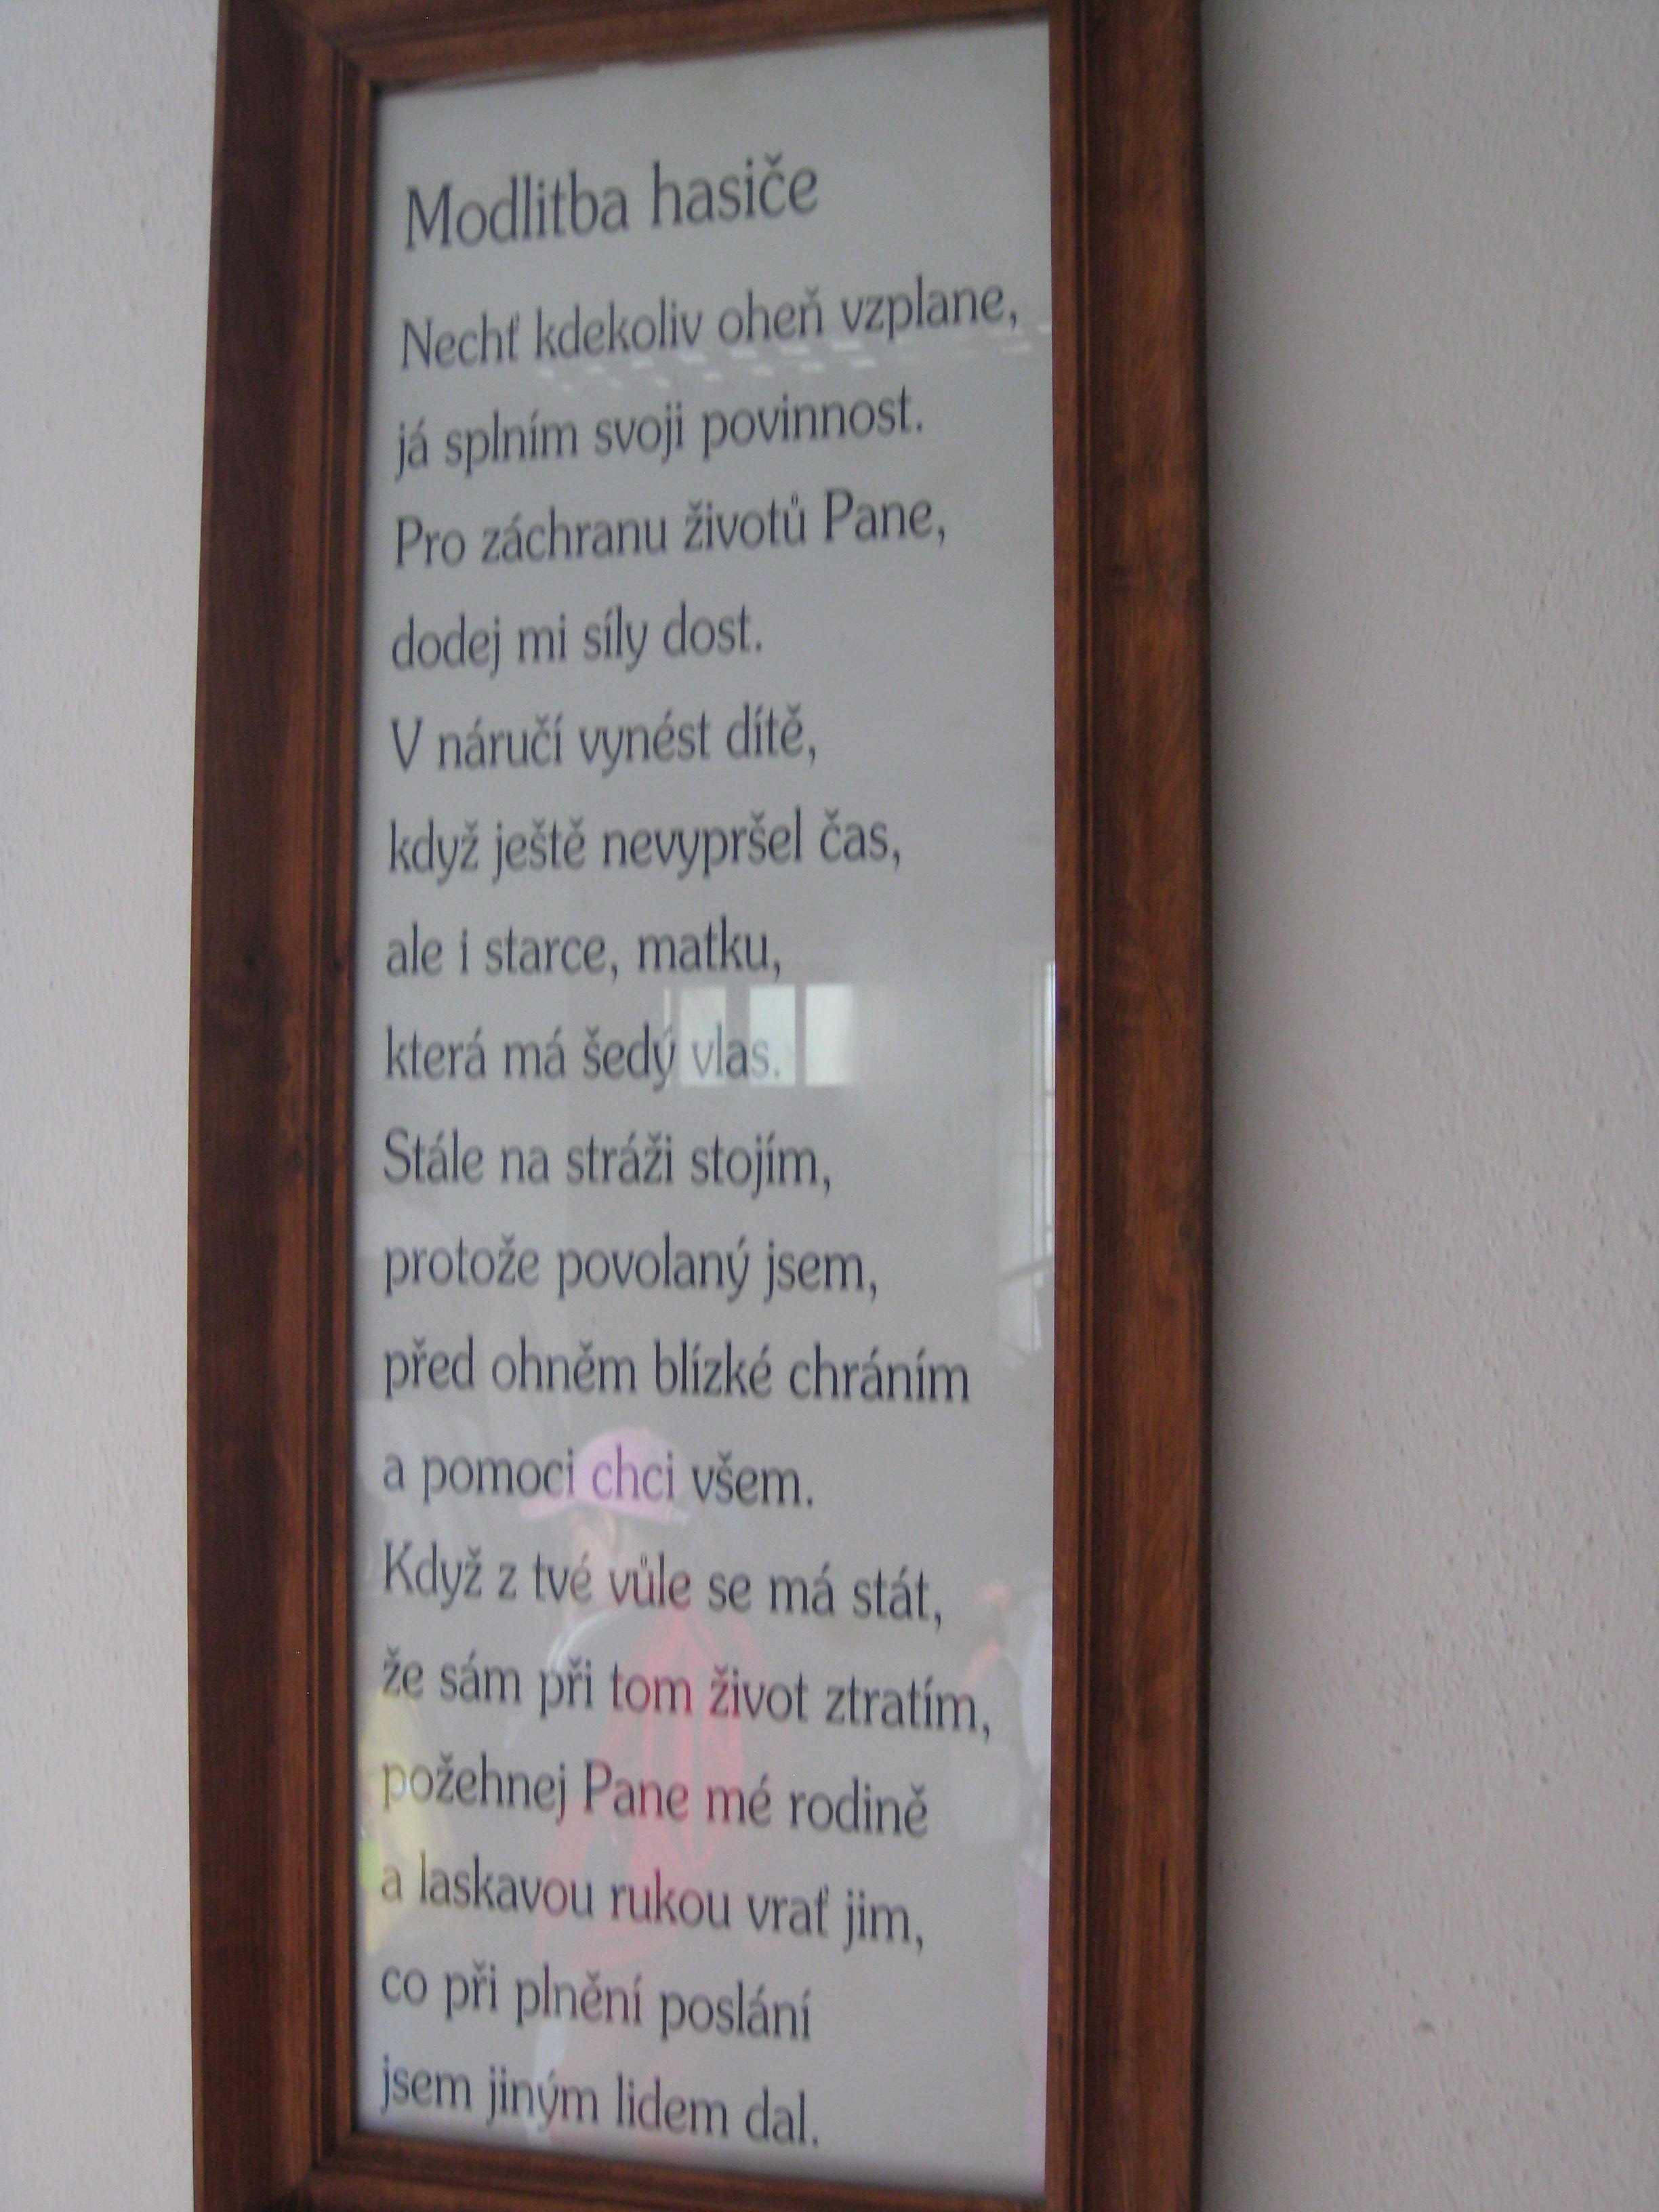 Modlitba hasiče
Nechť kdekoliv oheň vzplane,
já splním svoji povinnost.
Pro záchranu životů Pane,
dodej mi síly dost.
V náručí vynést dítě,
když ještě nevypršel čas,
ale i starce, matku,
která má šedý vlas.
Stále na stráži stojím,
protože povolaný jsem,
před ohněm blízké chráním
a pomoci chci všem.
Když z tvé vůle se má stát,
že sám při tom život ztratím,
požehnej Pane mé rodině
a laskavou rukou vrať jim,
co při plnění poslání
jsem jiným lidem dal.